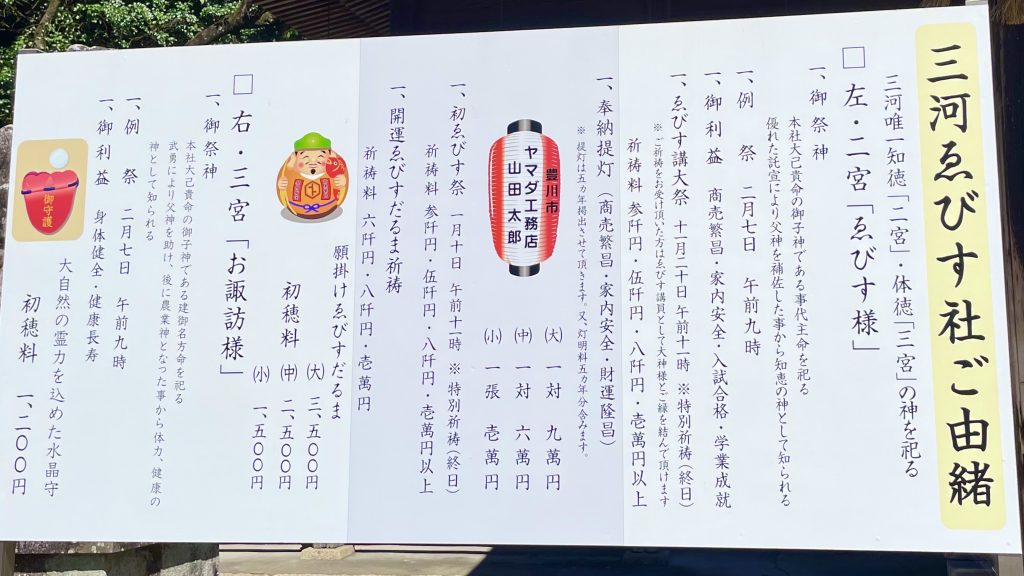 三河ゑびす社ご由緒
三河唯一知徳「二宮」・体徳「三宮」の神を祀る
□ 左・二宮「ゑびす様」
一、御祭神
本社大己貴命の御子神である事代主命を祀る
優れた託宣により父神を補佐した事から知恵の神として知られる
一、例 祭 二月七日 午前九時
一、御利益 商売繁昌・家内安全・入試合格・学業成就
一、ゑびす講大祭 十一月二十日 午前十一時 ※特別祈祷(終日)
※ご祈祷をお受け頂いた方はゑびす講員として大神様とご縁を結んで頂けます
祈祷料 参阡円・伍阡円・八阡円・壱萬円以上
一、奉納提灯(商売繁昌・家内安全・財運隆昌)
※提灯は五カ年掲出させて頂きます。又、灯明料五カ年分含みます。
豊川市
ヤマダ工務店
山田太郎
(大) 一対 九萬円
(中) 一対 六萬円
(小) 一張 壱萬円
一、初ゑびす祭 一月十日 午前十一時 ※特別祈祷(終日)
祈祷料 参阡円・伍阡円・八阡円・壱萬円以上
一、開運ゑびすだるま祈祷
祈祷料 六阡円・八阡円・壱萬円
願掛けゑびすだるま
初穂料
(大) 三、五〇〇円
(中) 二、五〇〇円
(小) 一、五〇〇円
□ 右・三宮「お諏訪様」
一、御祭神
本社大己貴命の御子神である建御名方命を祀る
武勇により父神を助け、後に農業神となった事から体力、健康の
神として知られる
一、例 祭 二月七日 午前九時
一、御利益 身体健全・健康長寿
御守護
大自然の霊力を込めた水晶守
初穂料 一、二〇〇円